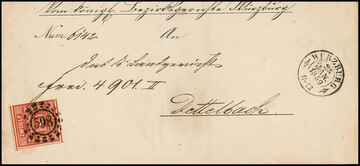 Vom königl. Bezirksgerichte Würzburg
Num. 6142. An
das k. Landgericht
frei. 4901. II
Dettelbach
WÜRZBURG
23
JAN.
1859
11-12
598